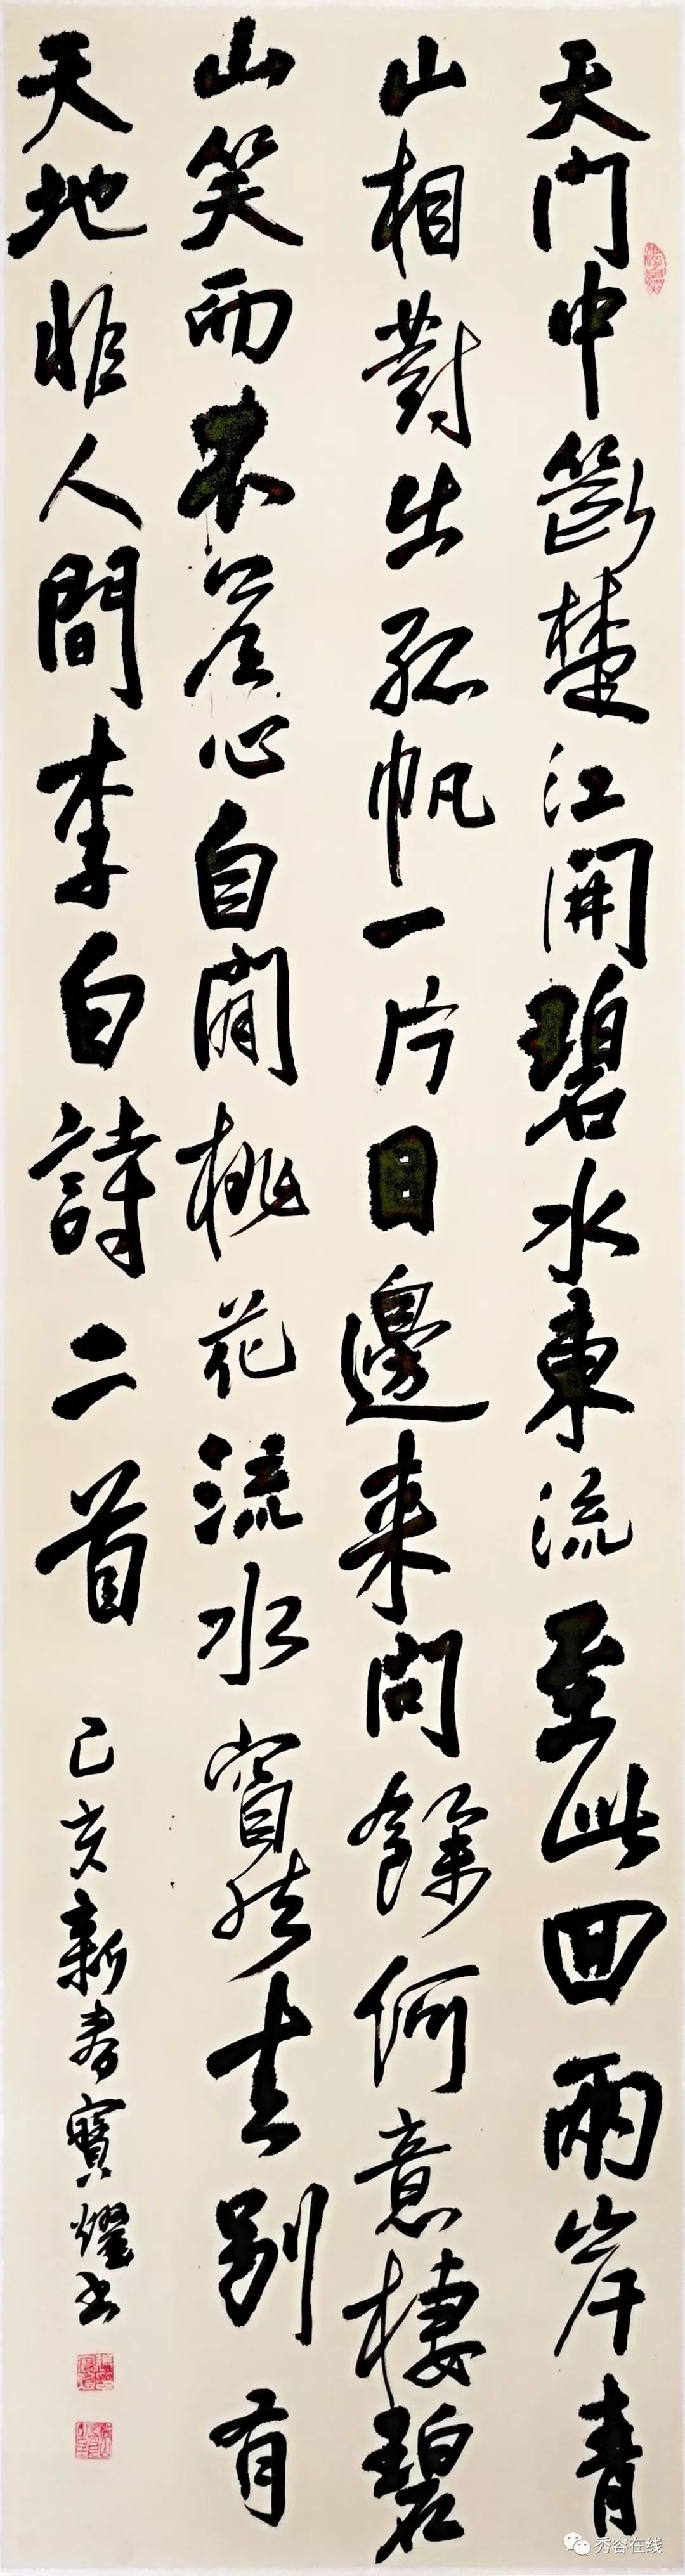 天門中斷楚江開碧水東流至此回兩岸青
山相對出孤帆一片日邊來問餘何意棲碧
山笑而不答心自閒桃花流水窅然去別有
天地非人間李白詩二首
己亥新春寶燿书
秀容在线